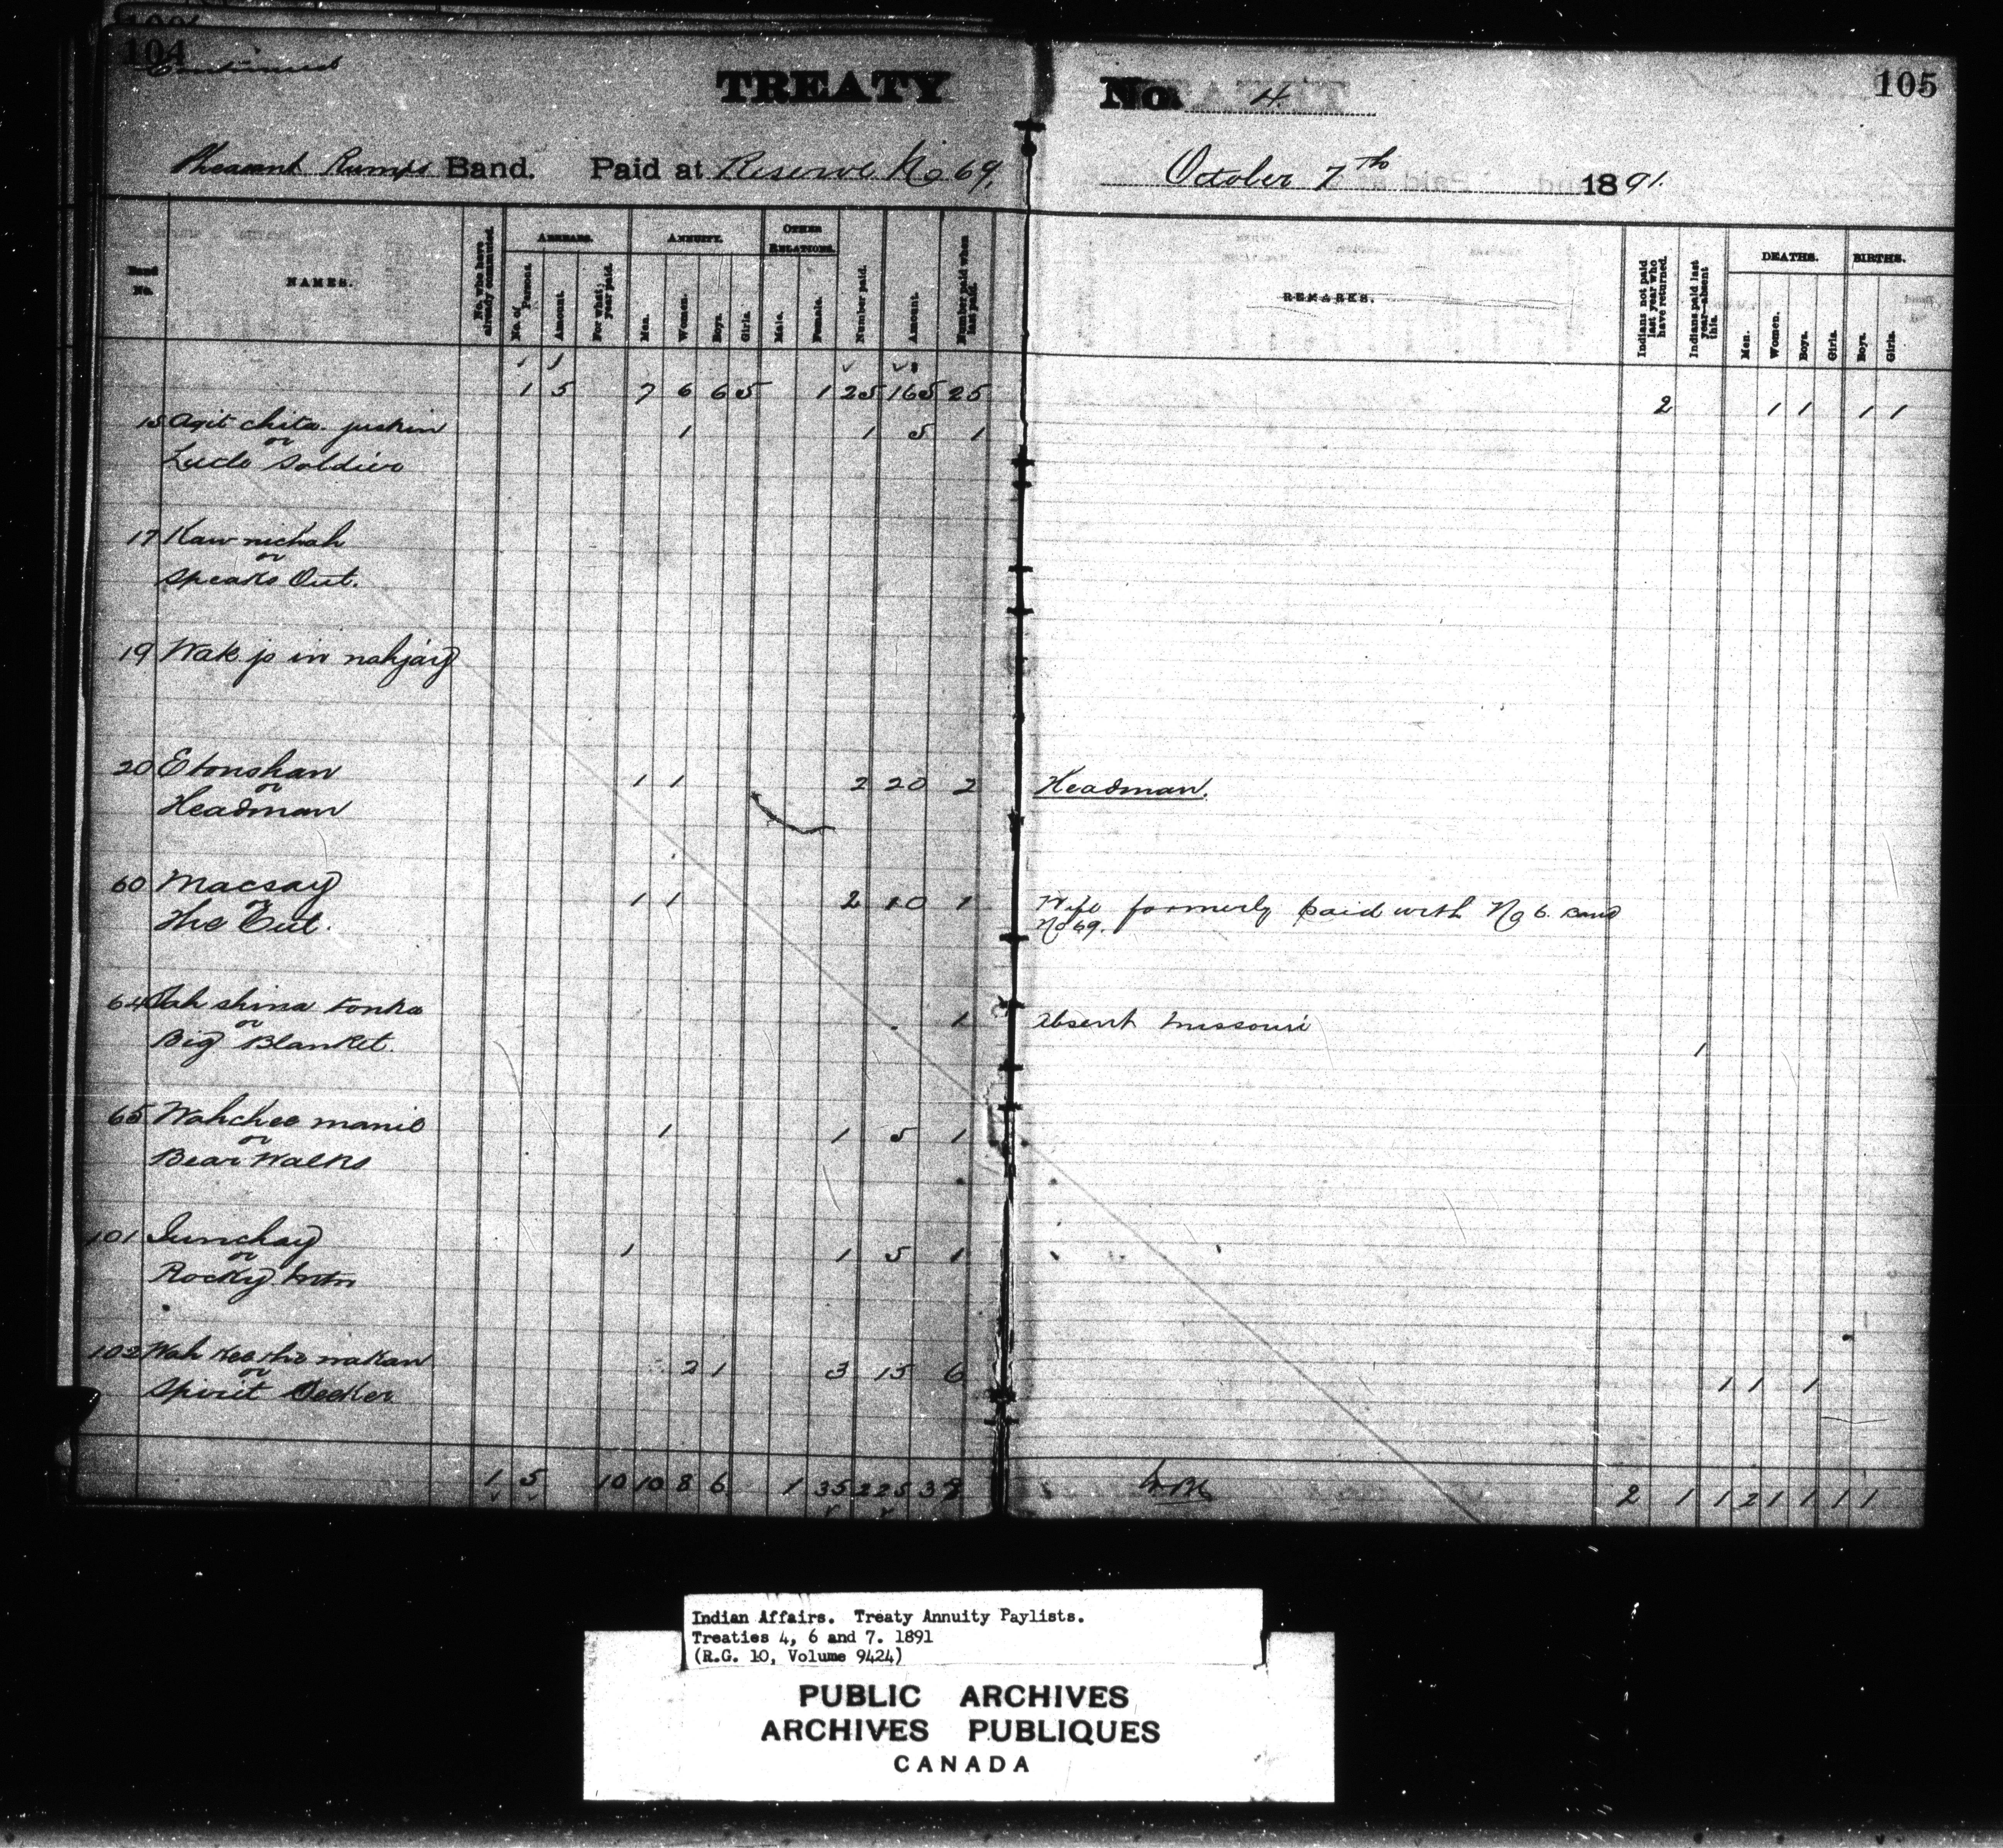 104
Continued
TREATY No. 4. 105
Pheasant Rumps Band. Paid at Reserve No 69. October 7th 1891.
Band No.
NAMES.
No. who have already commuted.
ARREARS.
No. of Persons.
Amount.
For what year paid.
ANNUITY.
Men.
Women.
Boys.
Girls.
OTHER RELATIONS.
Male.
Female.
Number paid.
Amount.
Number paid when last paid.
REMARKS.
Indians not paid last year who have returned.
Indians paid last year—absent this.
DEATHS.
Men.
Women.
Boys.
Girls.
BIRTHS.
Boys.
Girls.
1 5 7 6 6 5 1 25 165 25 2 1 1 1 1
15 1 1 5 1
or
Soldier
17 Kaw nickah
or
Speaks Out.
19
20 Etonshan 1 1 2 20 2 Headman.
or
Headman
60 Macsay 1 1 2 10 1 Wife formerly paid with No 6. Band
or
The Cut. No 69.
64 shina tonka 1 Absent Missouri
or
Big Blanket. 1
65 Wahchee manie 1 1 5 1
or
Bear Walks
101 1 1 5 1
or
Rocky Mtn
102 2 1 3 15 6 1 1 1
or
Spirit Seeker
1 5 10 10 8 6 1 35 225 38 2 1 1 2 1 1 1 1
Indian Affairs. Treaty Annuity Paylists.
Treaties 4, 6 and 7. 1891
(R.G. 10, Volume 9424)
PUBLIC ARCHIVES
ARCHIVES PUBLIQUES
CANADA